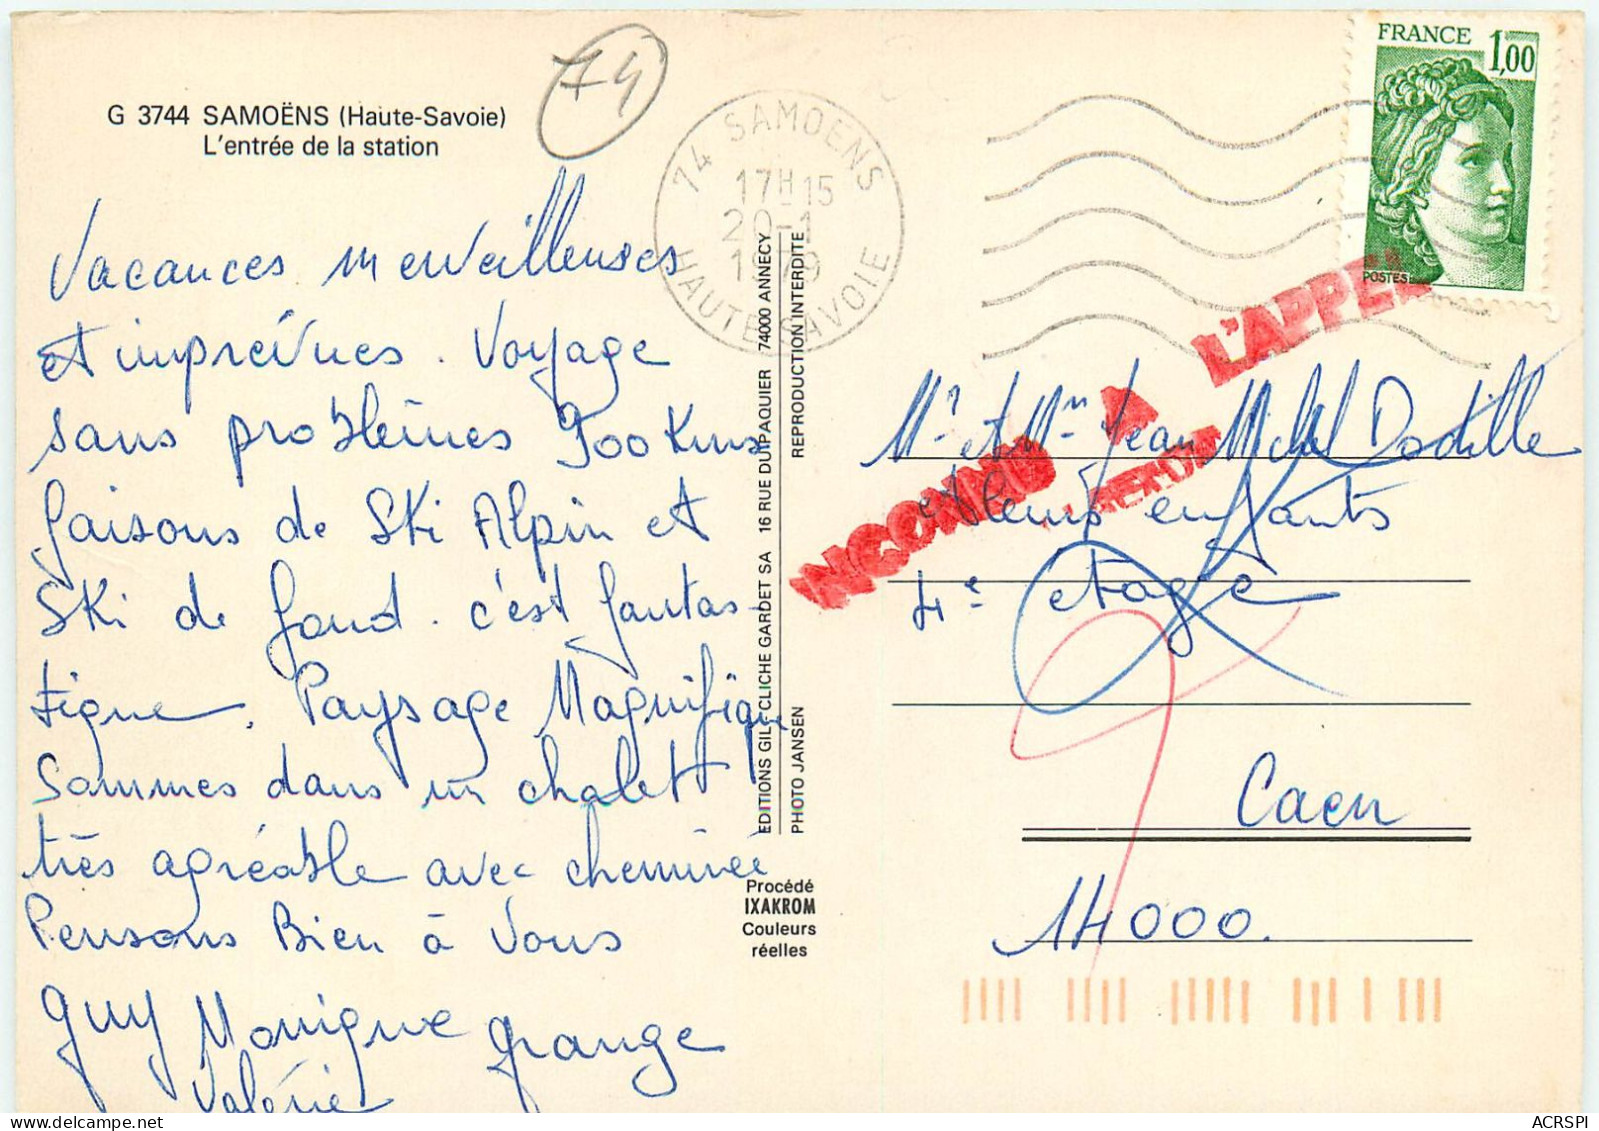 74
G 3744 SAMOËNS (Haute-Savoie)
L'entrée de la station
Vacances merveilleuses
et imprévues. Voyage
sans problèmes 900 Kms
faisons de Ski Alpin et
Ski de fond. c'est fantas-
tique. Paysage Magnifique
Sommes dans un chalet
très agréable avec cheminée
Pensons Bien à Vous
Guy Monique Grange
Valérie
74 SAMOENS
17H15
20-1
1979
HAUTE-SAVOIE
EDITIONS GIL - CLICHE GARDET SA 16 RUE DU PAQUIER 74000 ANNECY
PHOTO JANSEN REPRODUCTION INTERDITE
Procédé
IXAKROM
Couleurs
réelles
FRANCE 1,00
POSTES
INCONNU A L'APPEL
Mr et Mme Jean Michel
et leurs enfants
4e étage
Caen
14000.
ACRSPI